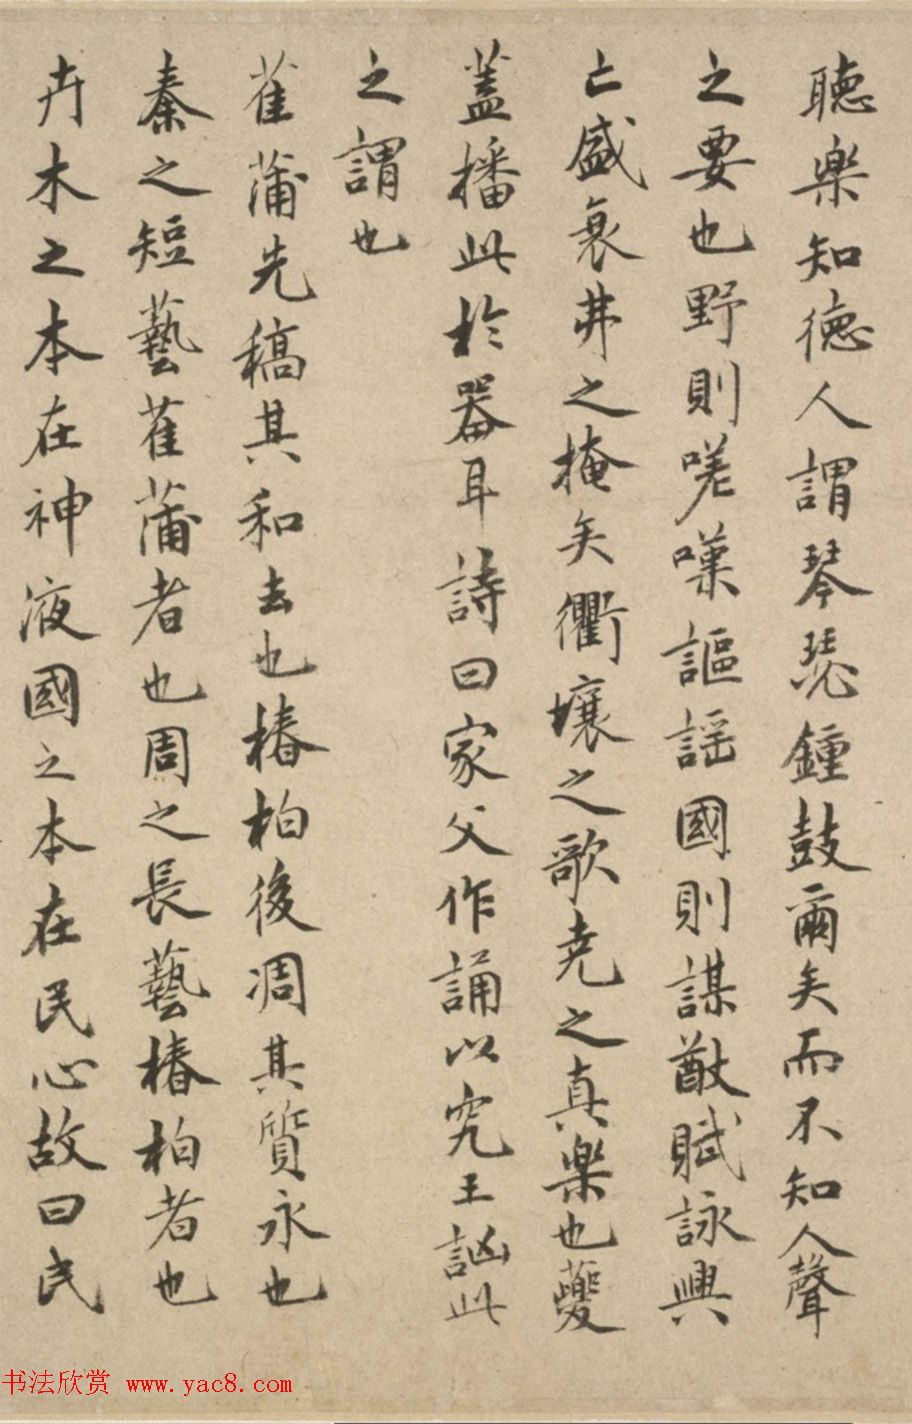 聽樂知德人謂琴瑟鍾鼓爾矣而不知人聲
之要也野則嗟嘆謳謡國則謀猷賦詠興
亡盛衰弗之掩矣衢壤之歌堯之真樂也夔
蓋播此於器耳詩曰家父作誦以究王訩此
之謂也
萑蒲先稿其和去也椿柏後凋其質永也
秦之短藝萑蒲者也周之長藝椿柏者也
卉木之本在神液國之本在民心故曰民
书法欣赏 www.yac8.com